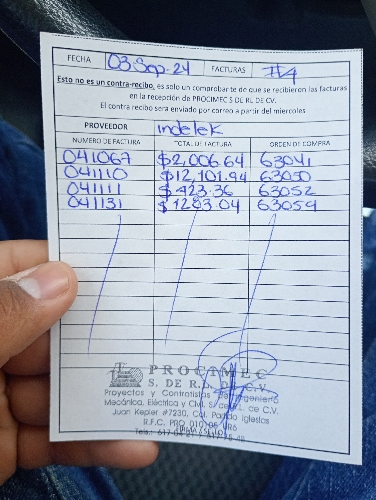 FECHA 03 Sep-24 FACTURAS #4
Esto no es un contra-recibo, es solo un comprobante de que se recibieron las facturas
en la recepción de PROCIMEC S DE RL DE CV.
El contra recibo sera enviado por correo a partir del miercoles
PROVEEDOR Indelek
NUMERO DE FACTURA TOTAL DE FACTURA ORDEN DE COMPRA
041067 $2,006.64 63041
041110 $12,101.94 63050
041111 $423.36 63052
041131 $1283.04 63054
PROCIMEC
S. DE R.L. DE C.V.
Proyectos y Contratistas de Ingeniería
Mecánica, Eléctrica y Civil, S. de R.L. de C.V.
Juan Kepler #7230, Col. Pardo Iglesias
R.F.C. PRO 010105
Tels.: 617-04-21